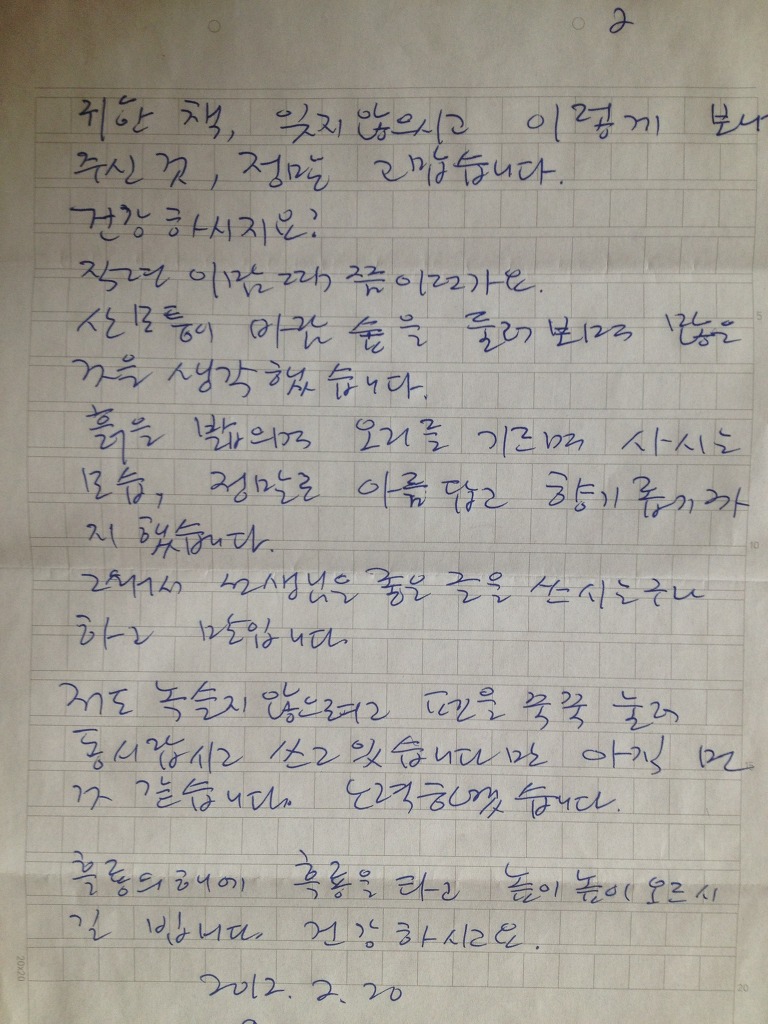 2
귀한 책, 잊지 않으시고 이렇게 보내
주신 것, 정말 고맙습니다.
건강하시지요?
작년 이맘때쯤이라가요.
산모퉁이 바람 숲을 둘러보며 많은
것을 생각했습니다.
흙을 밟으며 오리를 기르며 사시는
모습, 정말로 아름답고 향기롭기까
지 했습니다.
그래서 선생님은 좋은 글을 쓰시는구나
하고 말입니다.
저도 녹슬지 않으려고 펜을 꾹꾹 눌러
동시랍시고 쓰고 있습니다만 아직 먼
것 같습니다. 노력하겠습니다.
흑룡의 해에 흑룡을 타고 높이높이 오르시
길 빕니다. 건강하시고요.
2012. 2. 20
20x20
5
10
20